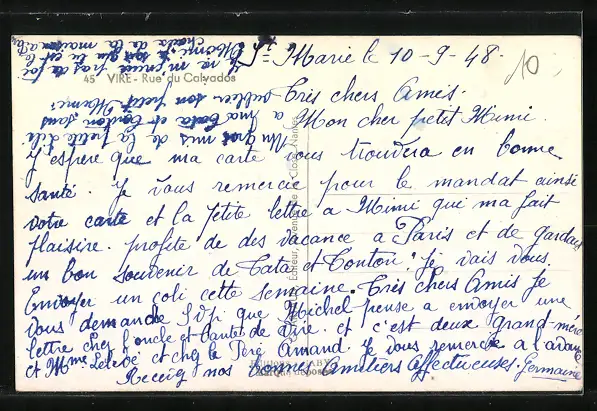 Ste Marie le 10-9-48.
10
45 VIRE - Rue du Calvados
Très chers Amis.
Mon cher petit Mimi.
J'espère que ma carte vous trouvera en bonne
santé. Je vous remercie pour le mandat ainsi
votre carte et la petite lettre a Mimi qui ma fait
plaisire. profite de des vacance a Paris et de gardais
un bon souvenir de Tata et Tonton. Je vais vous
Envoyer un coli cette semaine. Très chers Amis Je
vous demande S.V.P. que Michel pense a envoyer une
lettre chez l'oncle et tante de Vire. et c'est deux grand-mère
et Mme Lelevé et chez le Père Amand. Je vous remercie a l'avance
Recevez nos bonnes Amitiers Affectueuses. Germaine
Un gros mis de la petite
a ma tata et tonton sans
oublier son petit Mimi